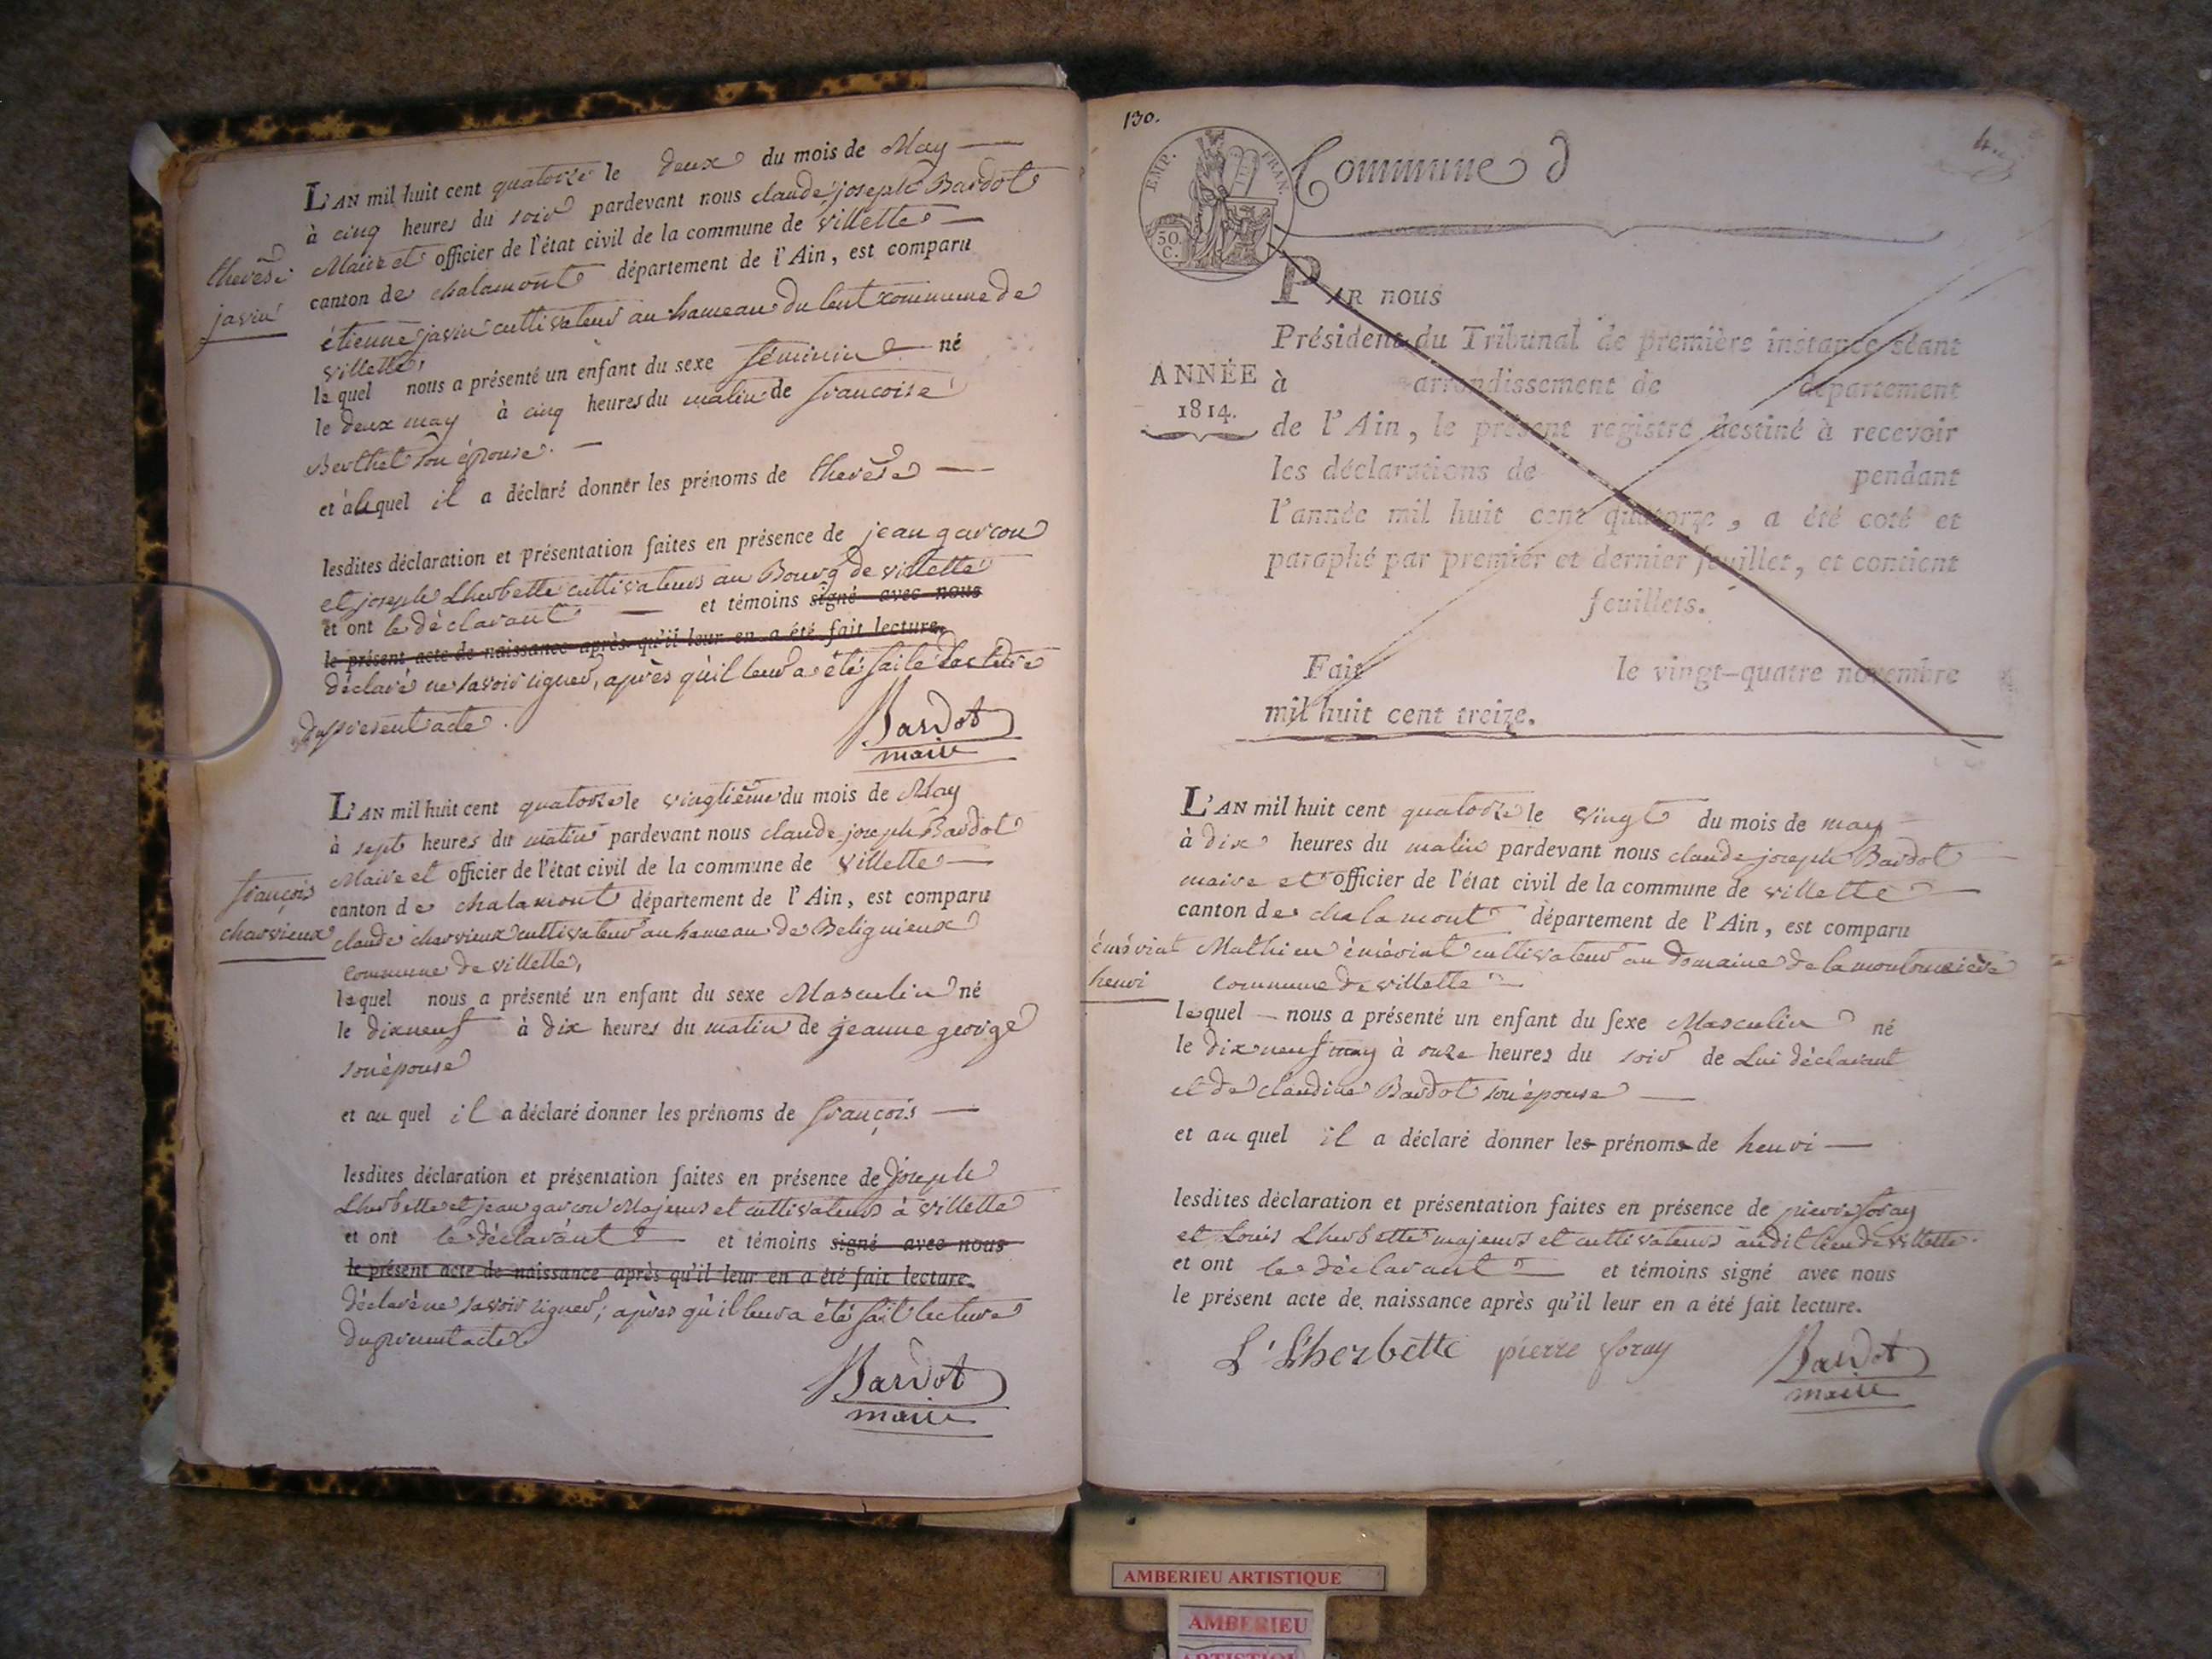 L'AN mil huit cent quatorze le deux du mois de May
à cinq heures du soir pardevant nous claude joseph Bardot
Maire et officier de l'état civil de la commune de villette
canton de chalamont département de l'Ain, est comparu
therèse
javin
étienne javin cultivateur au hameau du lent commune de
villette,
lequel nous a présenté un enfant du sexe féminin né
le deux may à cinq heures du matin de francoise
Berthet son épouse.
et à lequel il a déclaré donner les prénoms de therèse
lesdites déclaration et présentation faites en présence de jean garcon
et joseph Lherbette cultivateurs au Bourg de villette
et ont le déclarant et témoins signé avec nous
le présent acte de naissance après qu'il leur en a été fait lecture.
déclaré ne savoir signer, après qu'il leur a été fait lecture
du présent acte.
Bardot
maire
L'AN mil huit cent quatorze le vingtième du mois de May
à sept heures du matin pardevant nous claude joseph Bardot
Maire et officier de l'état civil de la commune de villette
canton de chalamont département de l'Ain, est comparu
françois
charvieux
claude charvieux cultivateur au hameau de Bélignieux
commune de villette,
lequel nous a présenté un enfant du sexe Masculin né
le dixneuf à dix heures du matin de jeanne george
son épouse
et au quel il a déclaré donner les prénoms de françois
lesdites déclaration et présentation faites en présence de joseph
Lherbette et jean garcon Majeurs et cultivateurs à villette
et ont le déclarant et témoins signé avec nous
le présent acte de naissance après qu'il leur en a été fait lecture.
déclaré ne savoir signer, après qu'il leur a été fait lecture
du présent acte
Bardot
maire
130.
4.
EMP. FRAN.
50.
C.
Commune d
PAR nous
Président du Tribunal de première instance séant
ANNÉE
1814.
à arrondissement de département
de l'Ain, le présent registre destiné à recevoir
les déclarations de pendant
l'année mil huit cent quatorze, a été coté et
paraphé par premier et dernier feuillet, et contient
feuillets.
Fait le vingt-quatre novembre
mil huit cent treize.
L'AN mil huit cent quatorze le vingt du mois de may
à dix heures du matin pardevant nous claude joseph Bardot
maire et officier de l'état civil de la commune de villette
canton de chalamont département de l'Ain, est comparu
émérint
henri
Mathieu émérint cultivateur au domaine de la
commune de villette
lequel nous a présenté un enfant du sexe Masculin né
le dixneuf may à onze heures du soir de Lui déclarant
et de claudine Bardot son épouse
et au quel il a déclaré donner les prénoms de henri
lesdites déclaration et présentation faites en présence de pierre foray
et Louis Lherbette majeurs et cultivateurs audit lieu de villette.
et ont le déclarant et témoins signé avec nous
le présent acte de naissance après qu'il leur en a été fait lecture.
L' Lherbette pierre foray Bardot
maire
AMBERIEU ARTISTIQUE
AMBERIEU
ARTISTIQU